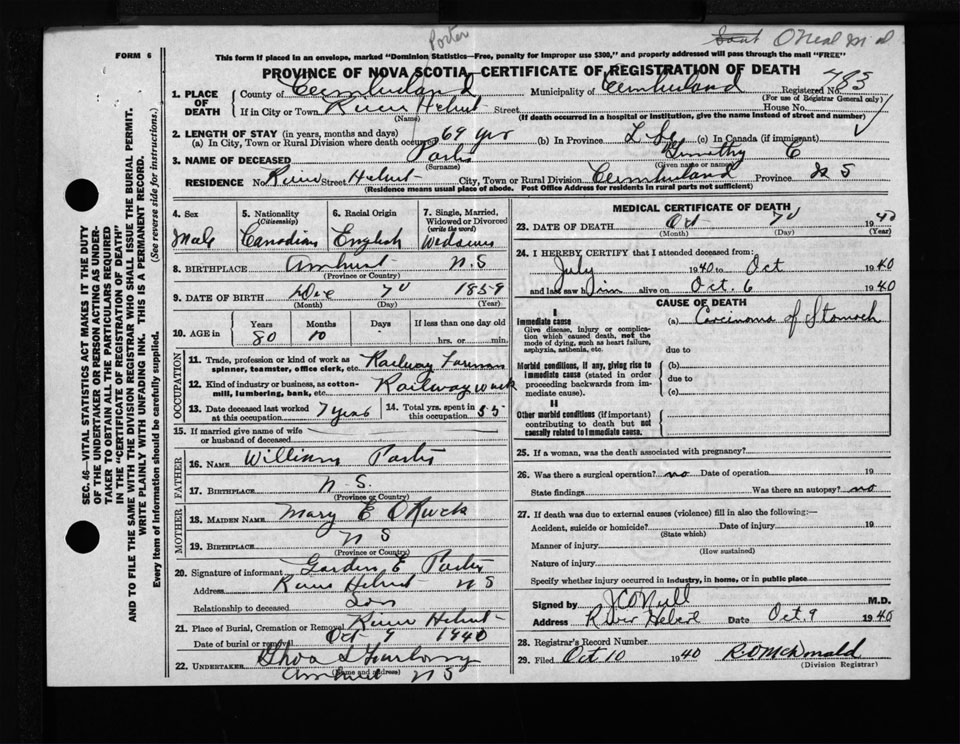 Porter
O'Neal M D
FORM 6
This form if placed in an envelope, marked "Dominion Statistics—Free, penalty for improper use $300," and properly addressed will pass through the mail "FREE"
PROVINCE OF NOVA SCOTIA—CERTIFICATE OF REGISTRATION OF DEATH
483
1. PLACE OF DEATH
County of Cumberland Municipality of Cumberland Registered No.
(For use of Registrar General only)
If in City or Town River Hebert Street House No.
(Name) (If death occurred in a hospital or institution, give the name instead of street and number)
2. LENGTH OF STAY (in years, months and days)
(a) In City, Town or Rural Division where death occurred 69 yrs (b) In Province Life (c) In Canada (if immigrant)
3. NAME OF DECEASED Porter Timothy E
(Surname) (Given name or names)
RESIDENCE No. River Street Hebert City, Town or Rural Division Cumberland Province N S
(Residence means usual place of abode. Post Office Address for residents in rural parts not sufficient)
4. Sex Male
5. Nationality (Citizenship) Canadian
6. Racial Origin English
7. Single, Married, Widowed or Divorced (write the word) Widower
8. BIRTHPLACE Amherst N.S
(Province or Country)
9. DATE OF BIRTH Dec 7 1859
(Month) (Day) (Year)
10. AGE in Years 80 Months 10 Days If less than one day old hrs. or min.
OCCUPATION
11. Trade, profession or kind of work as spinner, teamster, office clerk, etc. Railway Foreman
12. Kind of industry or business, as cotton-mill, lumbering, bank, etc. Railway work
13. Date deceased last worked at this occupation 7 years
14. Total yrs. spent in this occupation 55
15. If married give name of wife or husband of deceased
FATHER
16. NAME William Porter
17. BIRTHPLACE N S.
(Province or Country)
MOTHER
18. MAIDEN NAME Mary E
19. BIRTHPLACE N S
(Province or Country)
20. Signature of informant Gordon E Porter
Address River Hebert N S
Relationship to deceased Son
21. Place of Burial, Cremation or Removal River Hebert
Date of burial or removal Oct 9 1940
22. UNDERTAKER
(Name and address)
Amherst N S
MEDICAL CERTIFICATE OF DEATH
23. DATE OF DEATH Oct 7 1940
(Month) (Day) (Year)
24. I HEREBY CERTIFY that I attended deceased from:
July 1940 to Oct 1940
and last saw him alive on Oct. 6 1940
CAUSE OF DEATH
I
Immediate cause
Give disease, injury or complication which caused death, not the mode of dying, such as heart failure, asphyxia, asthenia, etc.
(a) Carcinoma of Stomach
due to
Morbid conditions, if any, giving rise to immediate cause (stated in order proceeding backwards from immediate cause).
(b)
due to
(c)
II
Other morbid conditions (if important) contributing to death but not causally related to immediate cause.
25. If a woman, was the death associated with pregnancy?
26. Was there a surgical operation? no Date of operation 19
State findings Was there an autopsy? no
27. If death was due to external causes (violence) fill in also the following:—
Accident, suicide or homicide? Date of injury 19
(State which)
Manner of injury
(How sustained)
Nature of injury
Specify whether injury occurred in industry, in home, or in public place
Signed by J C O'Neill M.D.
Address River Hebert Date Oct. 9 1940
28. Registrar's Record Number
29. Filed Oct 10 1940 R. D. McDonald
(Division Registrar)
SEC. 46—VITAL STATISTICS ACT MAKES IT THE DUTY
OF THE UNDERTAKER OR PERSON ACTING AS UNDER-
TAKER TO OBTAIN ALL THE PARTICULARS REQUIRED
IN THE "CERTIFICATE OF REGISTRATION OF DEATH"
AND TO FILE THE SAME WITH THE DIVISION REGISTRAR WHO SHALL ISSUE THE BURIAL PERMIT.
WRITE PLAINLY WITH UNFADING INK. THIS IS A PERMANENT RECORD.
Every item of information should be carefully supplied. (See reverse side for instructions.)